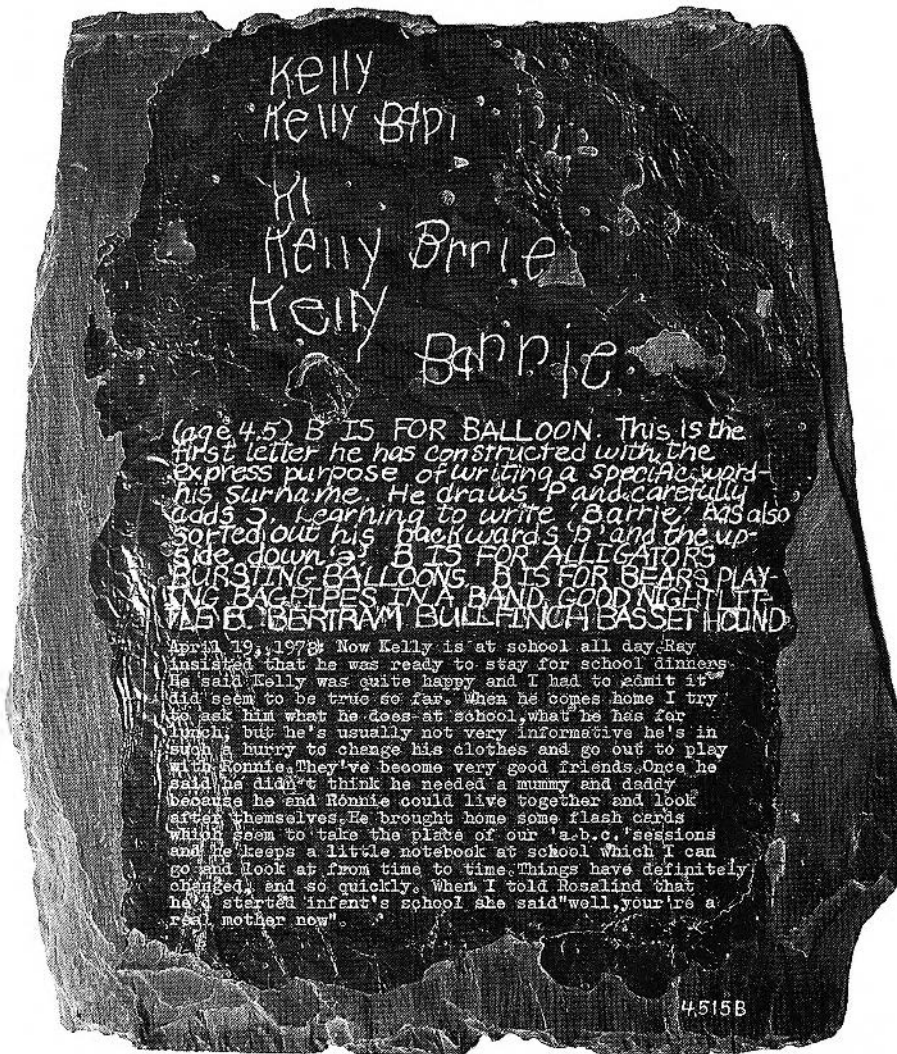 Kelly
Kelly Bapi
KI
Kelly Brrie
Kelly
Barrie
(age 4.5) B IS FOR BALLOON. This is the
first letter he has constructed with the
express purpose of writing a specific word-
his surname. He draws 'P' and carefully
adds 'Ɔ'. Learning to write 'Barrie' has also
sorted out his backwards 'b' and the up-
side down 'a'. B IS FOR ALLIGATORS
BURSTING BALLOONS. B IS FOR BEARS PLAY-
ING BAGPIPES IN A BAND. GOOD NIGHT LIT-
TLE B. BERTRAM BULLFINCH BASSET HOUND.
April 19, 1978: Now Kelly is at school all day. Ray
insisted that he was ready to stay for school dinners.
He said Kelly was quite happy and I had to admit it
did seem to be true so far. When he comes home I try
to ask him what he does at school, what he has for
lunch, but he's usually not very informative he's in
such a hurry to change his clothes and go out to play
with Ronnie. They've become very good friends. Once he
said he didn't think he needed a mummy and daddy
because he and Ronnie could live together and look
after themselves. He brought home some flash cards
which seem to take the place of our 'a.b.c.' sessions
and he keeps a little notebook at school which I can
go and look at from time to time. Things have definitely
changed, and so quickly. When I told Rosalind that
he'd started infant's school she said "well, your're a
real mother now".
4.515B